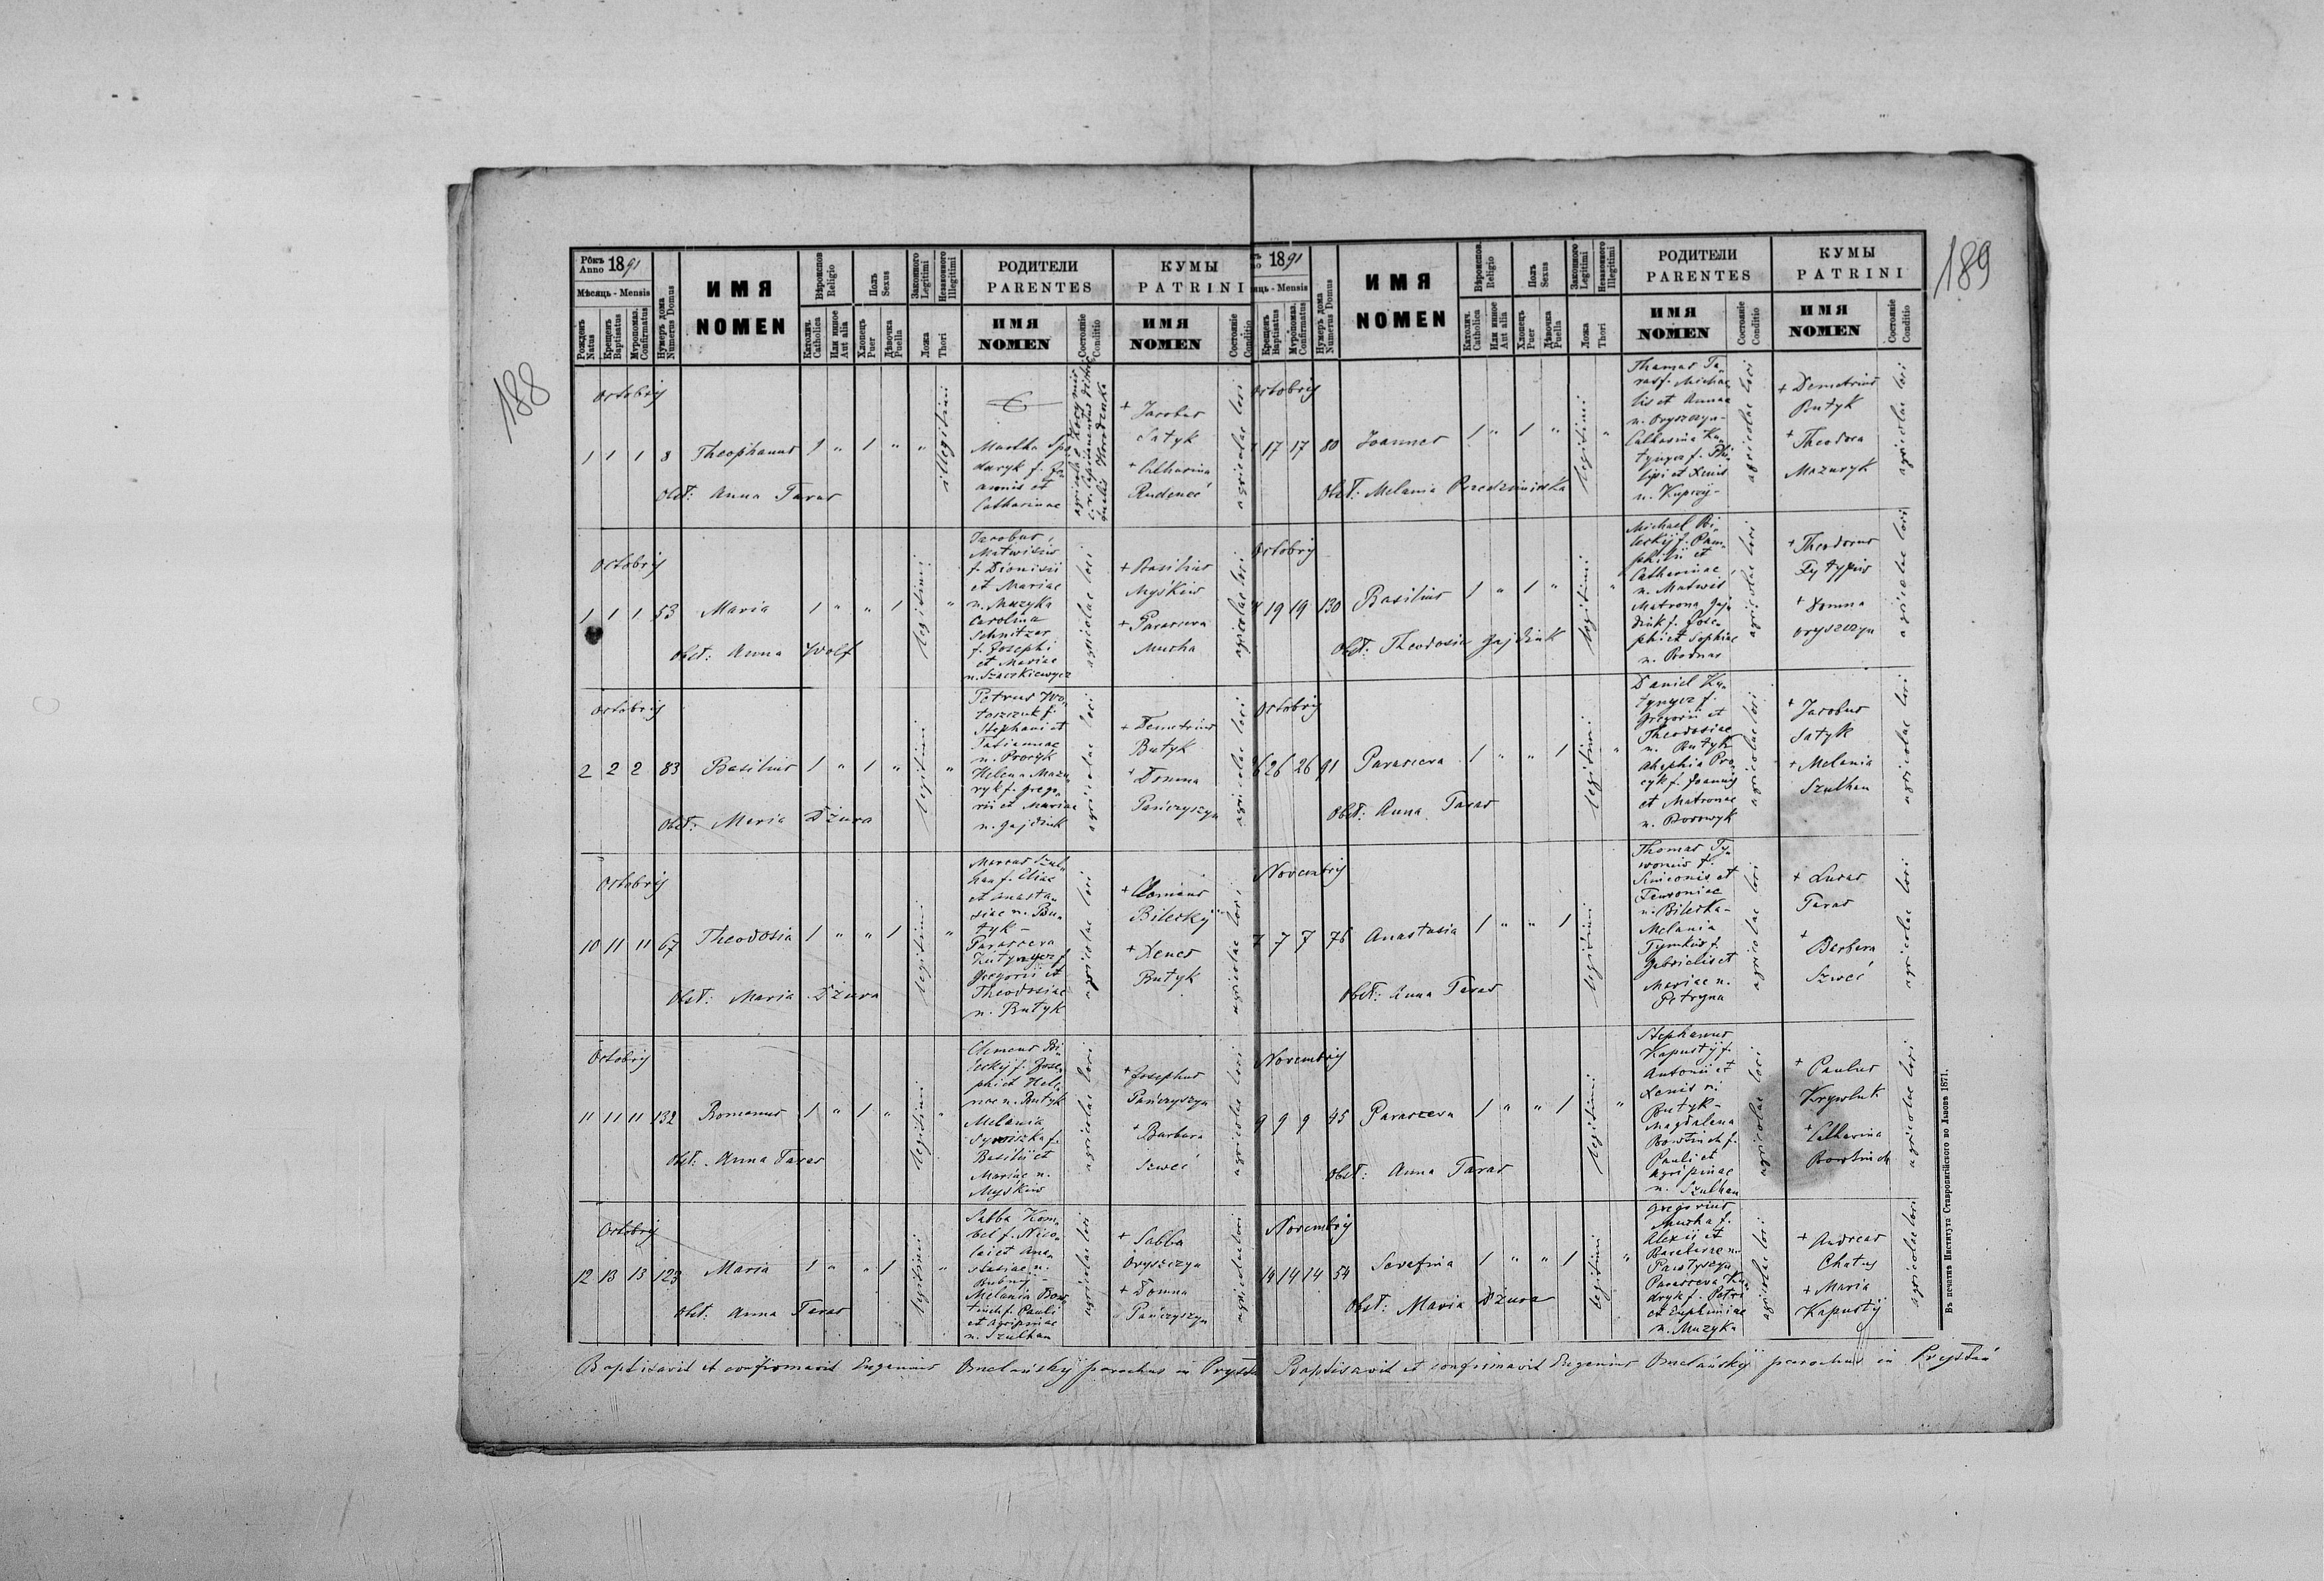 188
Рôкъ Anno 1891
Мѣсяць - Mensis
Рожденъ Natus
Крещенъ Baptisatus
Мѵропомаз. Confirmatus
Нумеръ дома Numerus Domus
ИМЯ
NOMEN
Вѣроиспов. Religio
Католич. Catholica
Или инное Aut alia
Полъ Sexus
Хлопець Puer
Дѣвочка Puella
Законного Legitimi
Незаконного Illegitimi
Ложа Thori
РОДИТЕЛИ
PARENTES
ИМЯ
NOMEN
Состояніе Conditio
КУМЫ
PATRINI
ИМЯ
NOMEN
Состояніе Conditio
Octobrij
1 1 1 8 Theophanus 1 " 1 " " illegitimi
Obst: Anna Taras
Martha
f. Jo
annis et
Catharinae
+ Jacobus
Satyk
+ Catharina
Rudeneć
agricolae loci
Octobrij
1 1 1 53 Maria 1 " " 1 legitimi "
Obst: Anna Wolf
Jacobus
Matwisiw
f. Dionisii
et Mariae
n. Muzyka
Carolina
Schnitzer
f. Josephi
et Mariae
n. Szaszkiewycz
agricolae loci
+ Basilius
Myśkiw
+ Parasceva
Mucha
agricolae loci
Octobrij
2 2 2 83 Basilius 1 " 1 " legitimi "
Obst: Maria Dżura
Petrus Wo
toszczuk f.
Stephani et
Tatiannae
n. Procyk
Helena Mazu
ryk f. Grego
rii et Mariae
n. Gajdiuk
agricolae loci
+ Demetrius
Butyk
+ Domna
Pańczyszyn
agricolae loci
Octobrij
10 11 11 67 Theodosia 1 " " 1 legitimi "
Obst: Maria Dżura
Marcus Szul
han f. Eliae
et Anasta
siae n. Bu
tyk -
Parasceva
Kutynycz f.
Gregorii et
Theodosiae
n. Butyk
agricolae loci
+ Clemens
Bileckij
+ Xenes
Butyk
agricolae loci
Octobrij
11 11 11 132 Romanus 1 " 1 " legitimi "
Obst: Anna Taras
Clemens Bi
leckij f. Jose
phi et Hele
nae n. Butyk
Melania
f.
Basilii et
Mariae n.
Myśkiw
agricolae loci
+ Josephus
Pańczyszyn
+ Barbara
Szweć
agricolae loci
Octobrij
12 13 13 123 Maria 1 " " 1 legitimi "
Obst: Anna Taras
Sabba Kom
bel f. Nico
lai et Ana
stasiae n.
Bubnij -
Melania Bow
tiuch f. Pauli
et Agripinae
n. Szulhan
agricolae loci
+ Sabba
Oryszczyn
+ Domna
Pańczyszyn
agricolae loci
Baptisavit et confirmavit Eugenius Omelańskij parochus in
189
1891
Крещенъ Baptisatus
Мѵропомаз. Confirmatus
Нумеръ дома Numerus Domus
ИМЯ
NOMEN
Вѣроиспов. Religio
Католич. Catholica
Или инное Aut alia
Полъ Sexus
Хлопець Puer
Дѣвочка Puella
Законного Legitimi
Незаконного Illegitimi
Ложа Thori
РОДИТЕЛИ
PARENTES
ИМЯ
NOMEN
Состояніе Conditio
КУМЫ
PATRINI
ИМЯ
NOMEN
Состояніе Conditio
Octobrij
17 17 80 Joannes 1 " 1 " legitimi "
Obst. Melania
Thomas Ta
ras f. Michae
lis et Annae
n. Oryszczyn -
Catharina Ku
tynycz f. Phi
lipi et Xenis
n. Kupczij -
agricolae loci
+ Demetrius
Butyk
+ Theodora
Mazuryk
agricolae loci
Octobrij
19 19 130 Basilius 1 " 1 " legitimi "
Obst. Theodosia Gajdiuk
Michael Bi
leckij f. Pam
philii et
Catharinae
n. Matwis
Matrona Gaj
diuk f. Jose
phi et Sophiae
n. Bodnar
agricolae loci
+ Theodorus
+ Domna
Oryszczyn
agricolae loci
Octobrij
26 26 91 Parasceva 1 " " 1 legitimi "
Obst: Anna Taras
Daniel Ku
tynycz f.
Gregorii et
Theodosiae
n. Butyk
Ahaphia Pro
cyk f. Joannis
et Matronae
n. Borowyk
agricolae loci
+ Jacobus
Satyk
+ Melania
Szulhan
agricolae loci
Novembrij
7 7 7 76 Anastasia 1 " " 1 legitimi "
Obst: Anna Taras
Thomas Ty
woniw f.
Simeonis et
Fewroniae
n. Bilecka -
Melania
Tymkiw f.
Gabrielis et
Mariae n.
Petryna
agricolae loci
+ Lucas
Taras
+ Barbara
Szweć
agricolae loci
Novembrij
9 9 9 45 Parasceva 1 " " 1 legitimi "
Obst: Anna Taras
Stephanus
Kapustij f.
Antonii et
Xenis n.
Butyk -
Magdalena
Bowtiuch f.
Pauli et
Agripinae
n. Szulhan
agricolae loci
+ Paulus
+ Catharina
Bowtiuch
agricolae loci
Novembrij
14 14 14 54 Serafina 1 " " 1 legitimi "
Obst: Maria Dżura
Gregorius
Mucha f.
Alexii et
Barbarae n.
Parasceva Ku
dryk f. Petri
et Euphimiae
n. Muzyka
agricolae loci
+ Andreas
+ Maria
Kapustij
agricolae loci
Baptisavit et confirmavit Eugenius Omelańskij parochus in
Въ печатнѣ Института Ставропигійского во Львовѣ 1871.